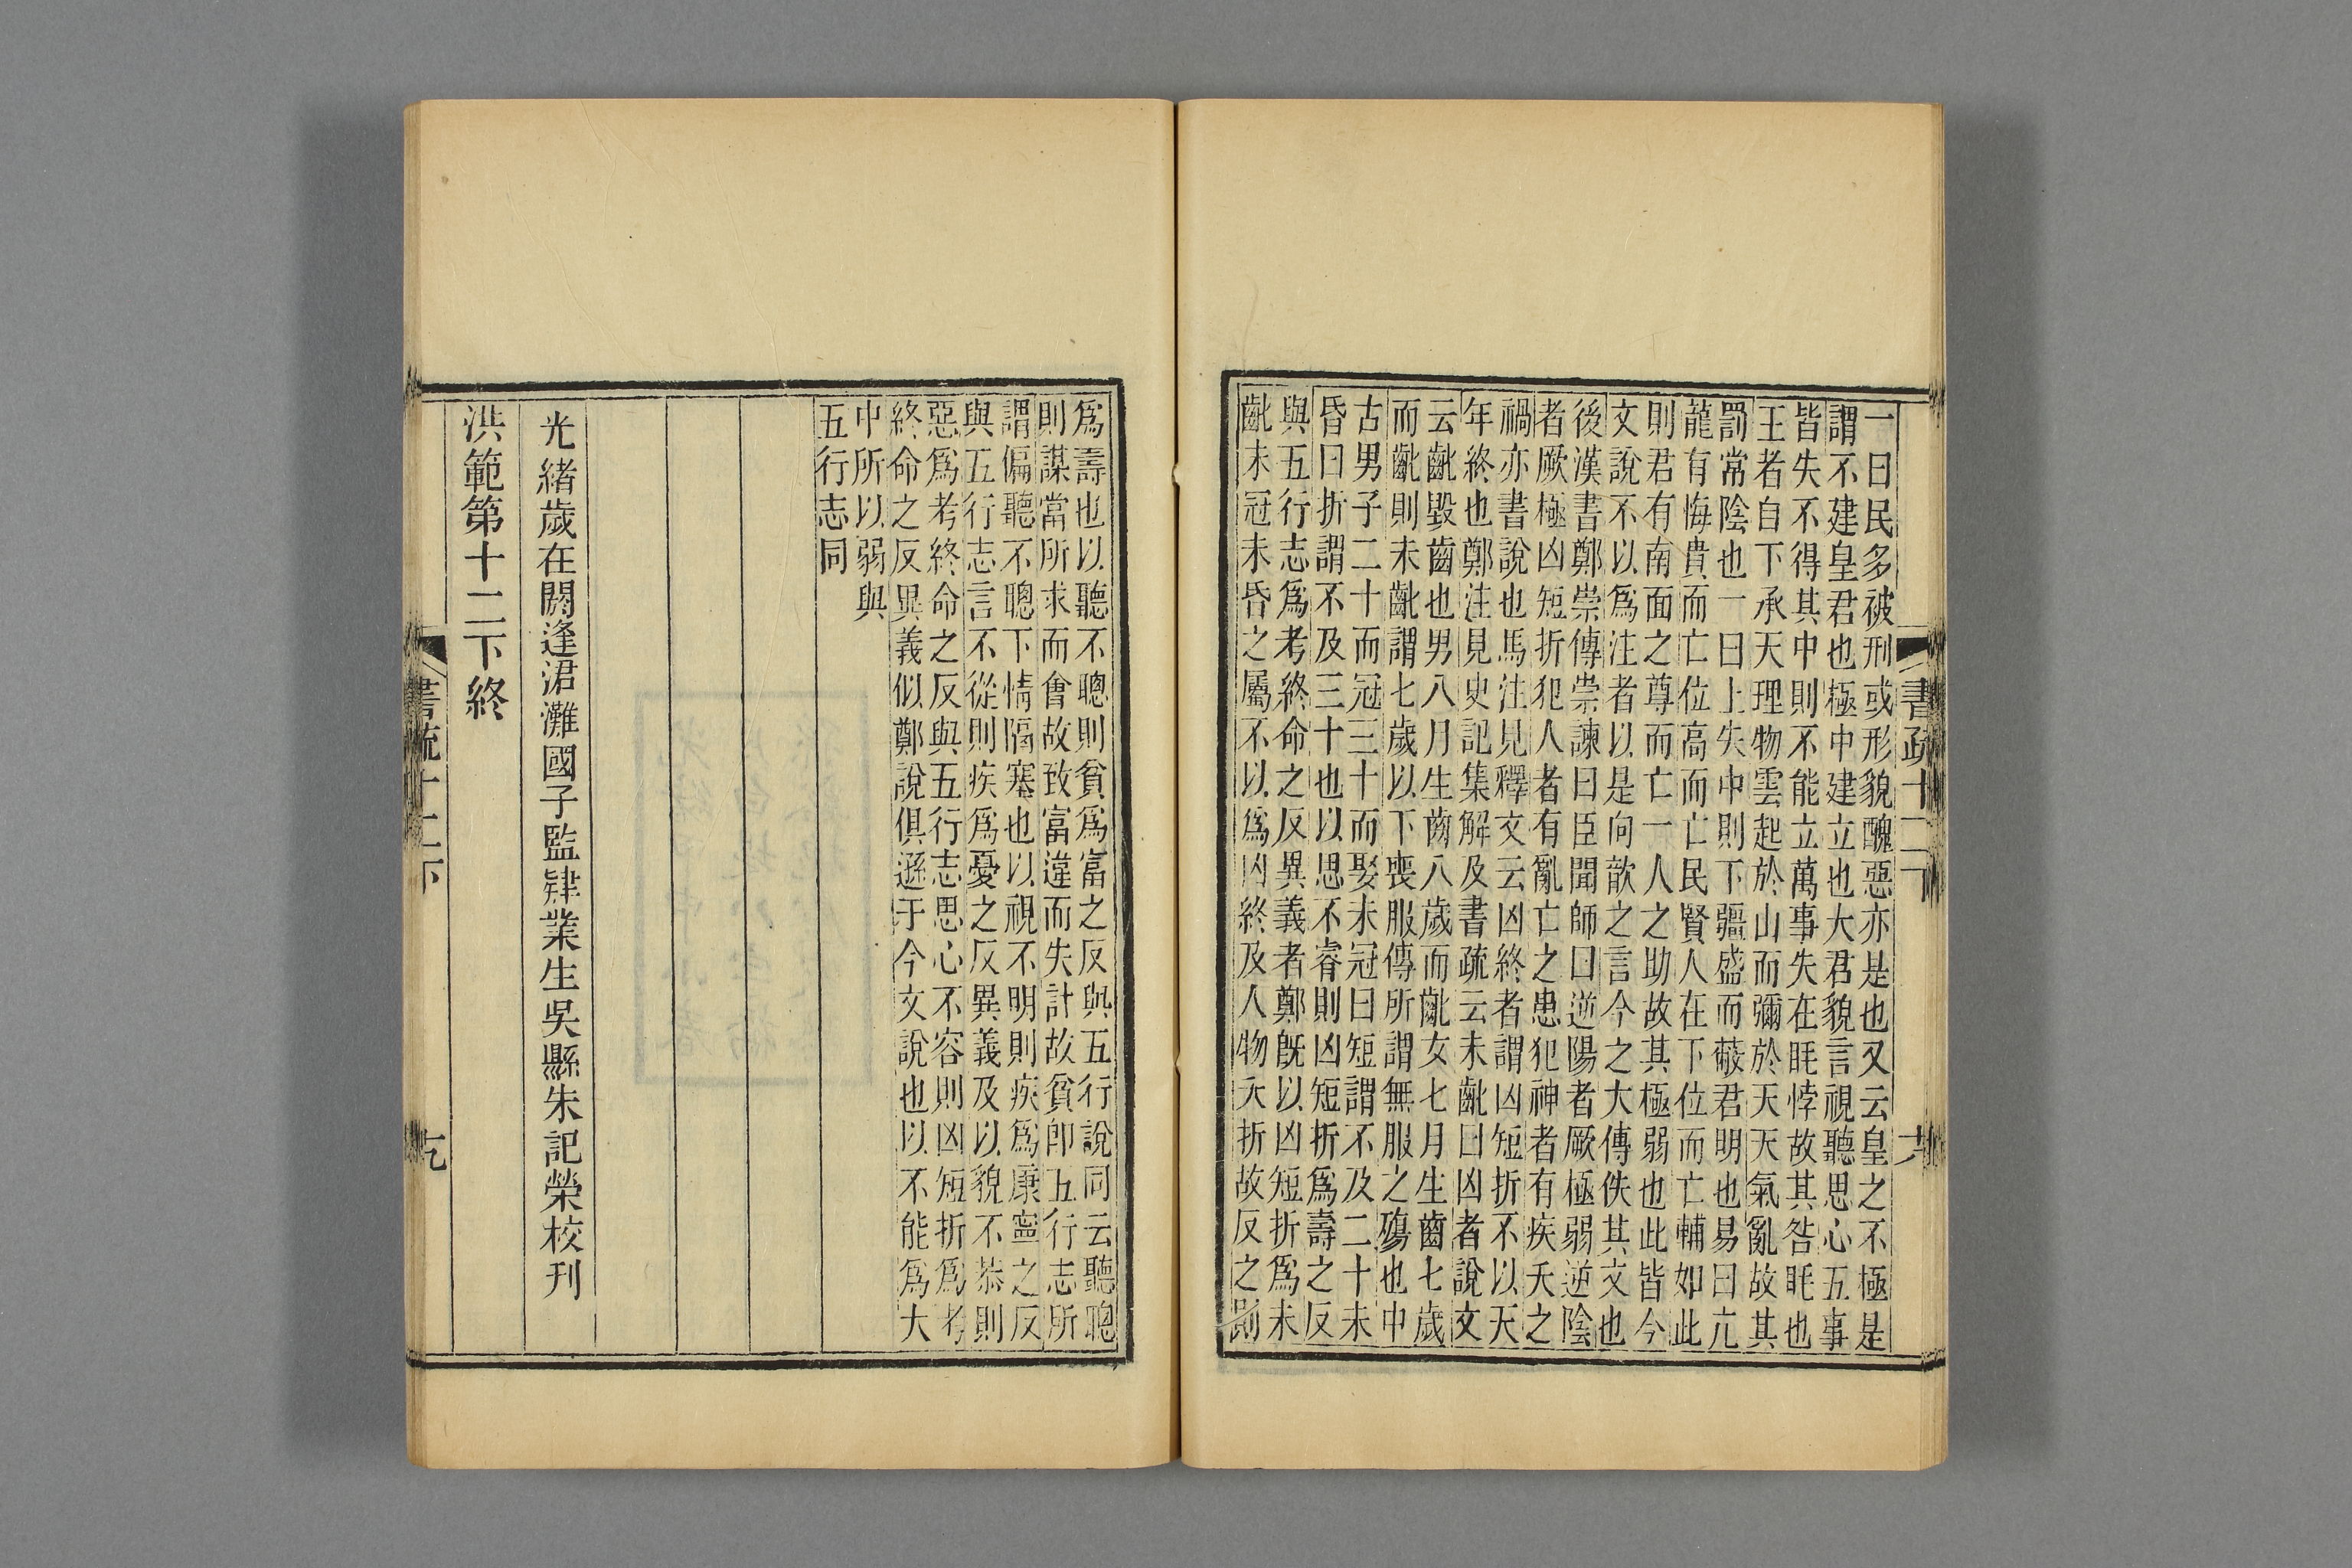 一曰民多被刑或形貌醜惡亦是也又云皇之不極是
謂不建皇君也極中建立也大君貌言視聽思心五事
皆失不得其中則不能立萬事失在眊悖故其咎眊也
王者自下承天理物雲起於山而彌於天天氣亂故其
罰常陰也一曰上失中則下彊盛而蔽君明也易曰亢
龍有悔貴而亡位高而亡民賢人在下位而亡輔如此
則君有南面之尊而亡一人之助故其極弱也此皆今
文說不以爲注者以是向歆之言今之大傳佚其文也
後漢書鄭崇傳崇諫曰臣聞師曰逆陽者厥極弱逆陰
者厥極凶短折犯人者有亂亡之患犯神者有疾夭之
禍亦書說也馬注見釋文云凶終者謂凶短折不以天
年終也鄭注見史記集解及書疏云未齓曰凶者說文
云齓毀齒也男八月生齒八歲而齓女七月生齒七歲
而齓則未齓謂七歲以下喪服傳所謂無服之殤也中
古男子二十而冠三十而娶未冠曰短謂不及二十未
昏曰折謂不及三十也以思不睿則凶短折爲壽之反
與五行志爲考終命之反異義者鄭旣以凶短折爲未
齓未冠未昏之屬不以爲凶終及人物夭折故反之則
書疏十二下
大
爲壽也以聽不聰則貧爲富之反與五行說同云聽聰
則謀當所求而會故致富違而失計故貧卽五行志所
謂偏聽不聰下情隔塞也以視不明則疾爲康寧之反
與五行志言不從則疾爲憂之反異義及以貌不恭則
惡爲考終命之反與五行志思心不容則凶短折爲考
終命之反異義似鄭說俱遜于今文說也以不能爲大
中所以弱與
五行志同
光緒歲在閼逢涒灘國子監肄業生吳縣朱記榮校刊
洪範第十二下終
書疏十二下